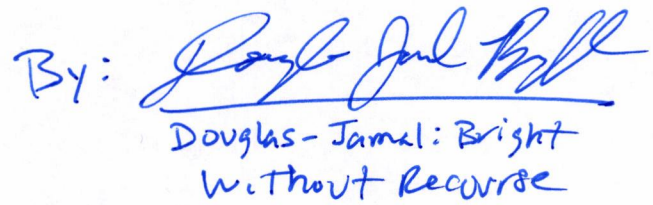 By: Douglas Jamal Bright
Douglas-Jamal: Bright
Without Recourse